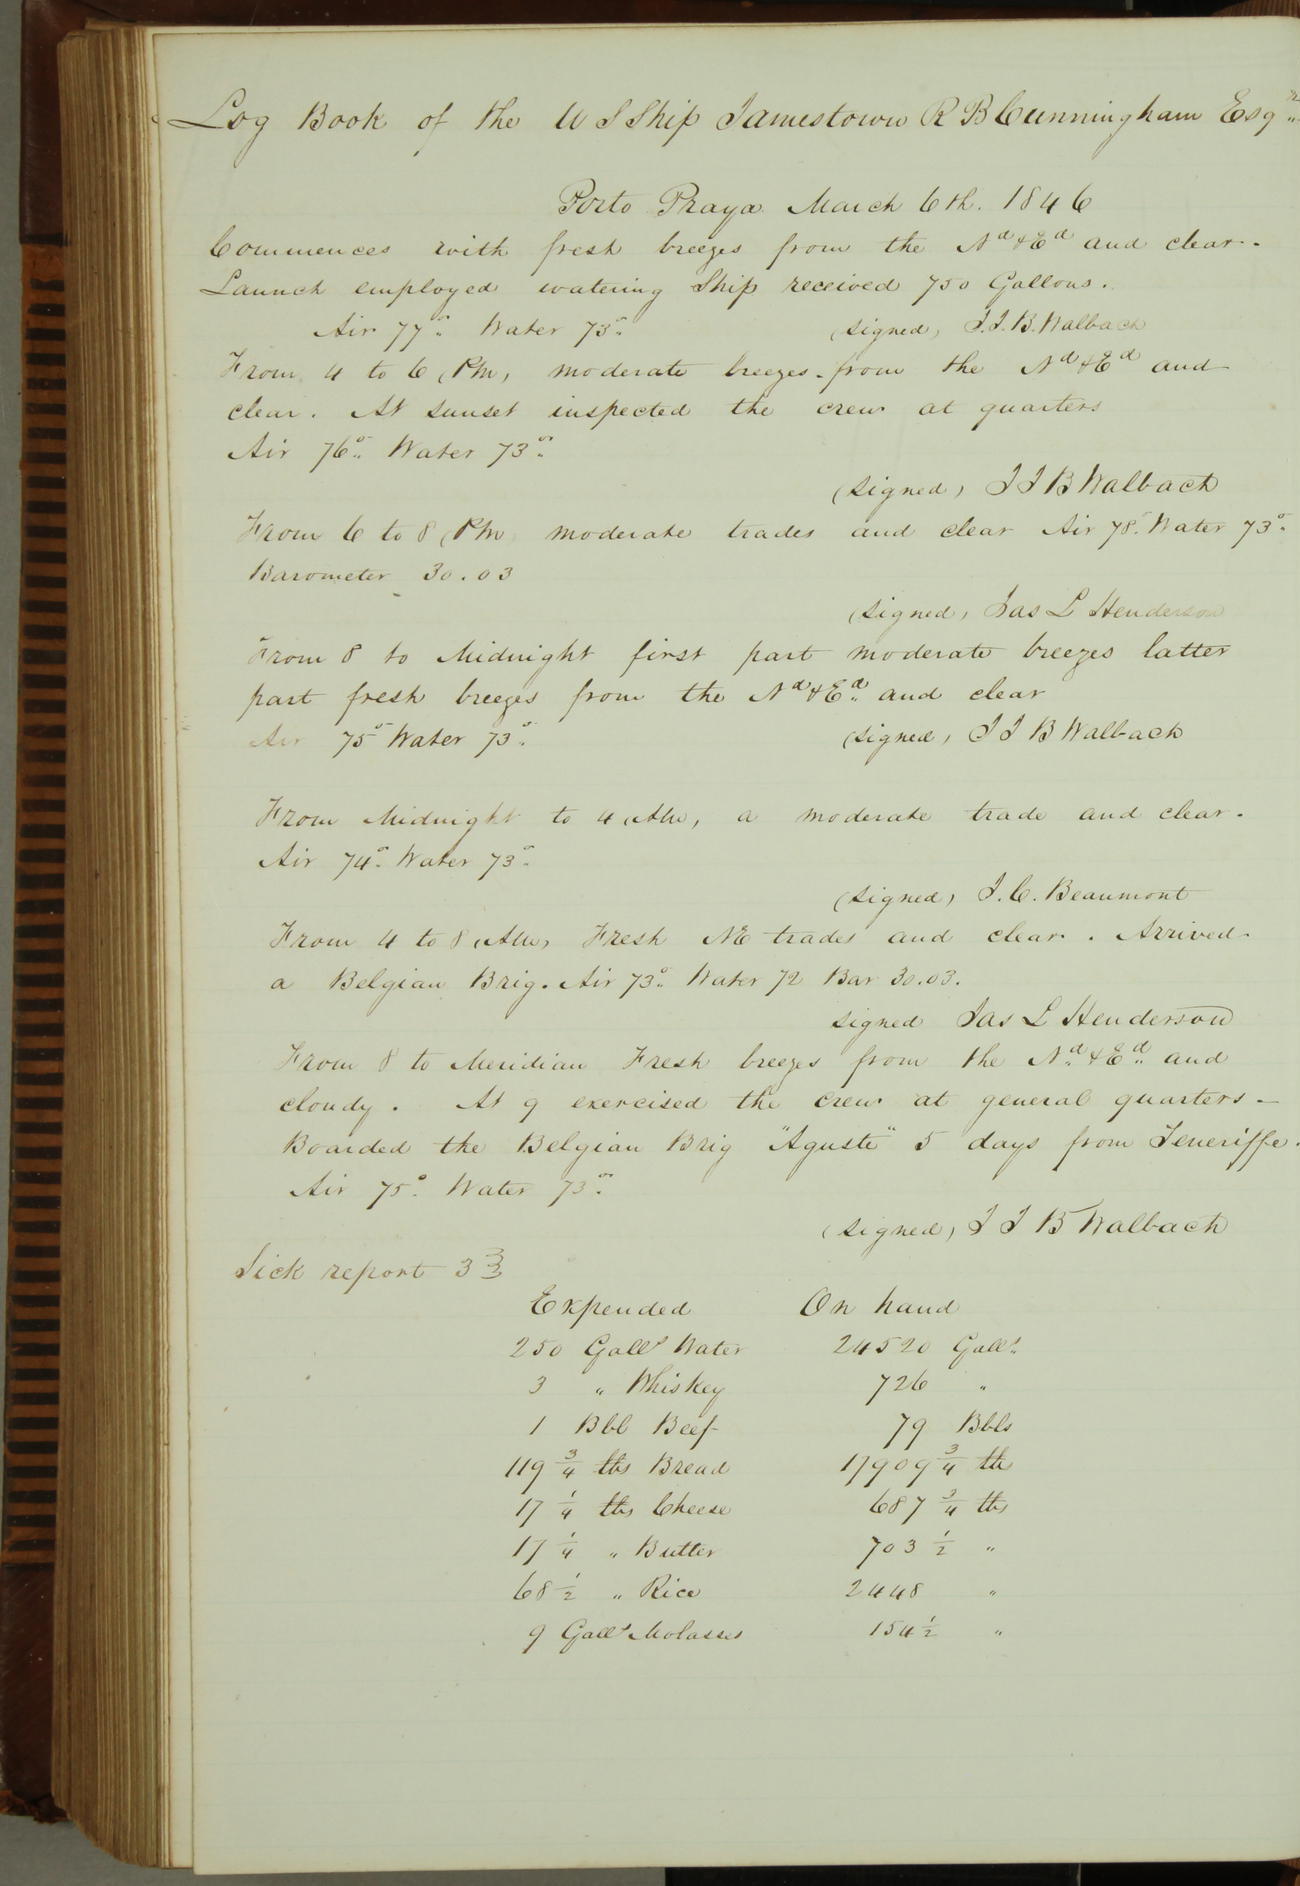 Log Book of the U S Ship Jamestown R B Cunningham Esqr
Porto Praya March 6th. 1846
Commences with fresh breezes from the Nd & Ed and clear.
Launch employed watering Ship received 750 Gallons.
Air 77° Water 73° (signed) J.J.B. Walbach
From 4 to 6 PM, moderate breezes from the Nd & Ed and
clear. At sunset inspected the crew at quarters
Air 76° Water 73°
(signed) J J B Walbach
From 6 to 8 PM moderate trades and clear Air 78° Water 73°
Barometer 30.03
(signed) Jas L Henderson
From 8 to Midnight first part moderate breezes latter
part fresh breezes from the Nd & Ed and clear
Air 75° Water 73° (signed) J J B Walbach
From Midnight to 4 AM, a moderate trade and clear.
Air 74° Water 73°
(signed) J. C. Beaumont
From 4 to 8 AM, Fresh NE trades and clear. Arrived
a Belgian Brig. Air 73° Water 72 Bar 30.03.
signed Jas L Henderson
From 8 to Meridian Fresh breezes from the Nd & Ed and
cloudy. At 9 exercised the crew at general quarters –
Boarded the Belgian Brig "Aguste" 5 days from Teneriffe.
Air 75° Water 73°
(signed) J J B Walbach
Sick report 33
Expended On hand
250 Galls Water 24520 Galls
3 " Whiskey 726 "
1 Bbl Beef 79 Bbls
119 3/4 lbs Bread 17909 3/4 lbs
17 1/4 lbs Cheese 687 3/4 lbs
17 1/4 " Butter 703 1/2 "
68 1/2 " Rice 2448 "
9 Galls Molasses 154 1/2 "